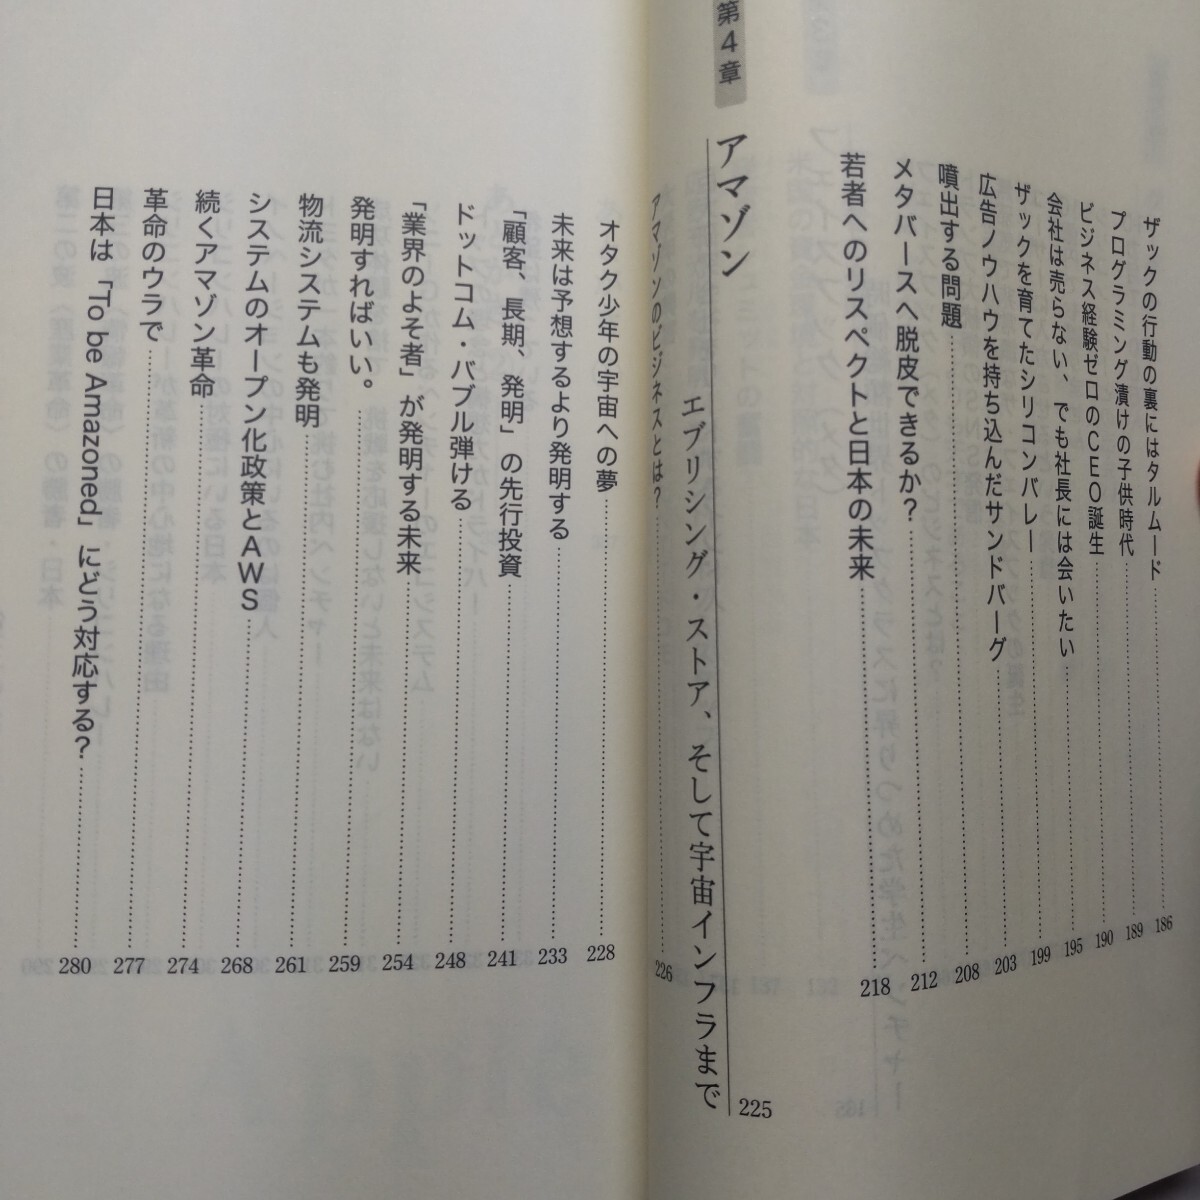 ザックの行動の裏にはタルムード 186
プログラミング漬けの子供時代 189
ビジネス経験ゼロのCEO誕生 190
会社は売らない、でも社長には会いたい 195
ザックを育てたシリコンバレー 199
広告ノウハウを持ち込んだサンドバーグ 203
噴出する問題 208
メタバースへ脱皮できるか? 212
若者へのリスペクトと日本の未来 218
第4章
アマゾン
エブリシング・ストア、そして宇宙インフラまで 225
アマゾンのビジネスとは? 226
オタク少年の宇宙への夢 228
未来は予想するより発明する 233
「顧客、長期、発明」の先行投資 241
ドットコム・バブル弾ける 248
「業界のよそ者」が発明する未来 254
発明すればいい。 259
物流システムも発明 261
システムのオープン化政策とAWS 268
続くアマゾン革命 274
革命のウラで 277
日本は「To be Amazoned」にどう対応する? 280